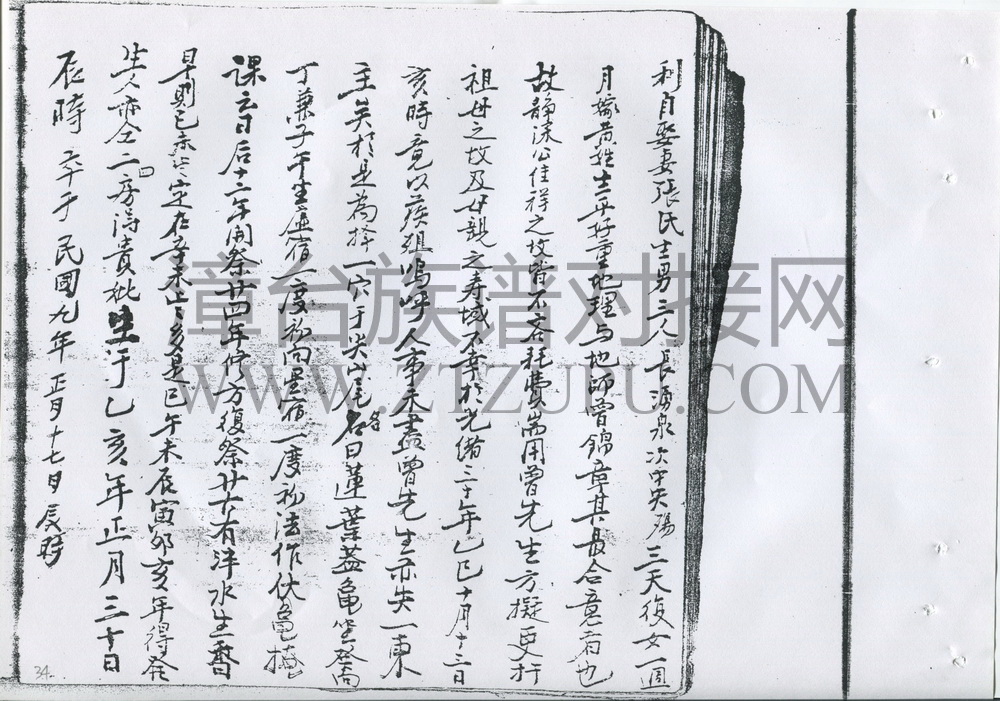 利貞娶妻張氏生男三人長湧泉次中央殤三天復女一適
月嫁黃姓生平好重地理与地師曾錦章其最合意者也
故靜深公佳祥之坟皆不吝耗費耑用曾先生方擬更扦
祖母之坟及母親之寿域不幸於光緒三十年乙巳十月十三日
亥時竟以疾殂嗚呼人事未盡曾先生亦失一東
主矣於是為擇一穴于尖山尾名曰蓮葉蓋龜坐癸向
丁兼子午坐虛宿一度初向星宿一度初法作伏龜
課云日后十二年開祭廿四年修方復祭廿六有泮水生香
早則巳亥定在辛未是巳午未辰寅卯亥年得癸
生人亦全二四房得貴秕生于乙亥年正月三十日
辰時 卒于民國九年正月十七日辰時
34
章台族谱对接网
WWW.ZTZUPU.COM